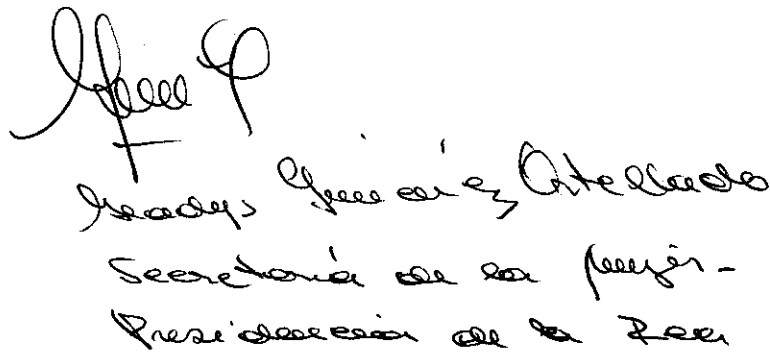 Gladys Giménez Artellado
Secretaría de la Mujer-
Presidencia de la Rea